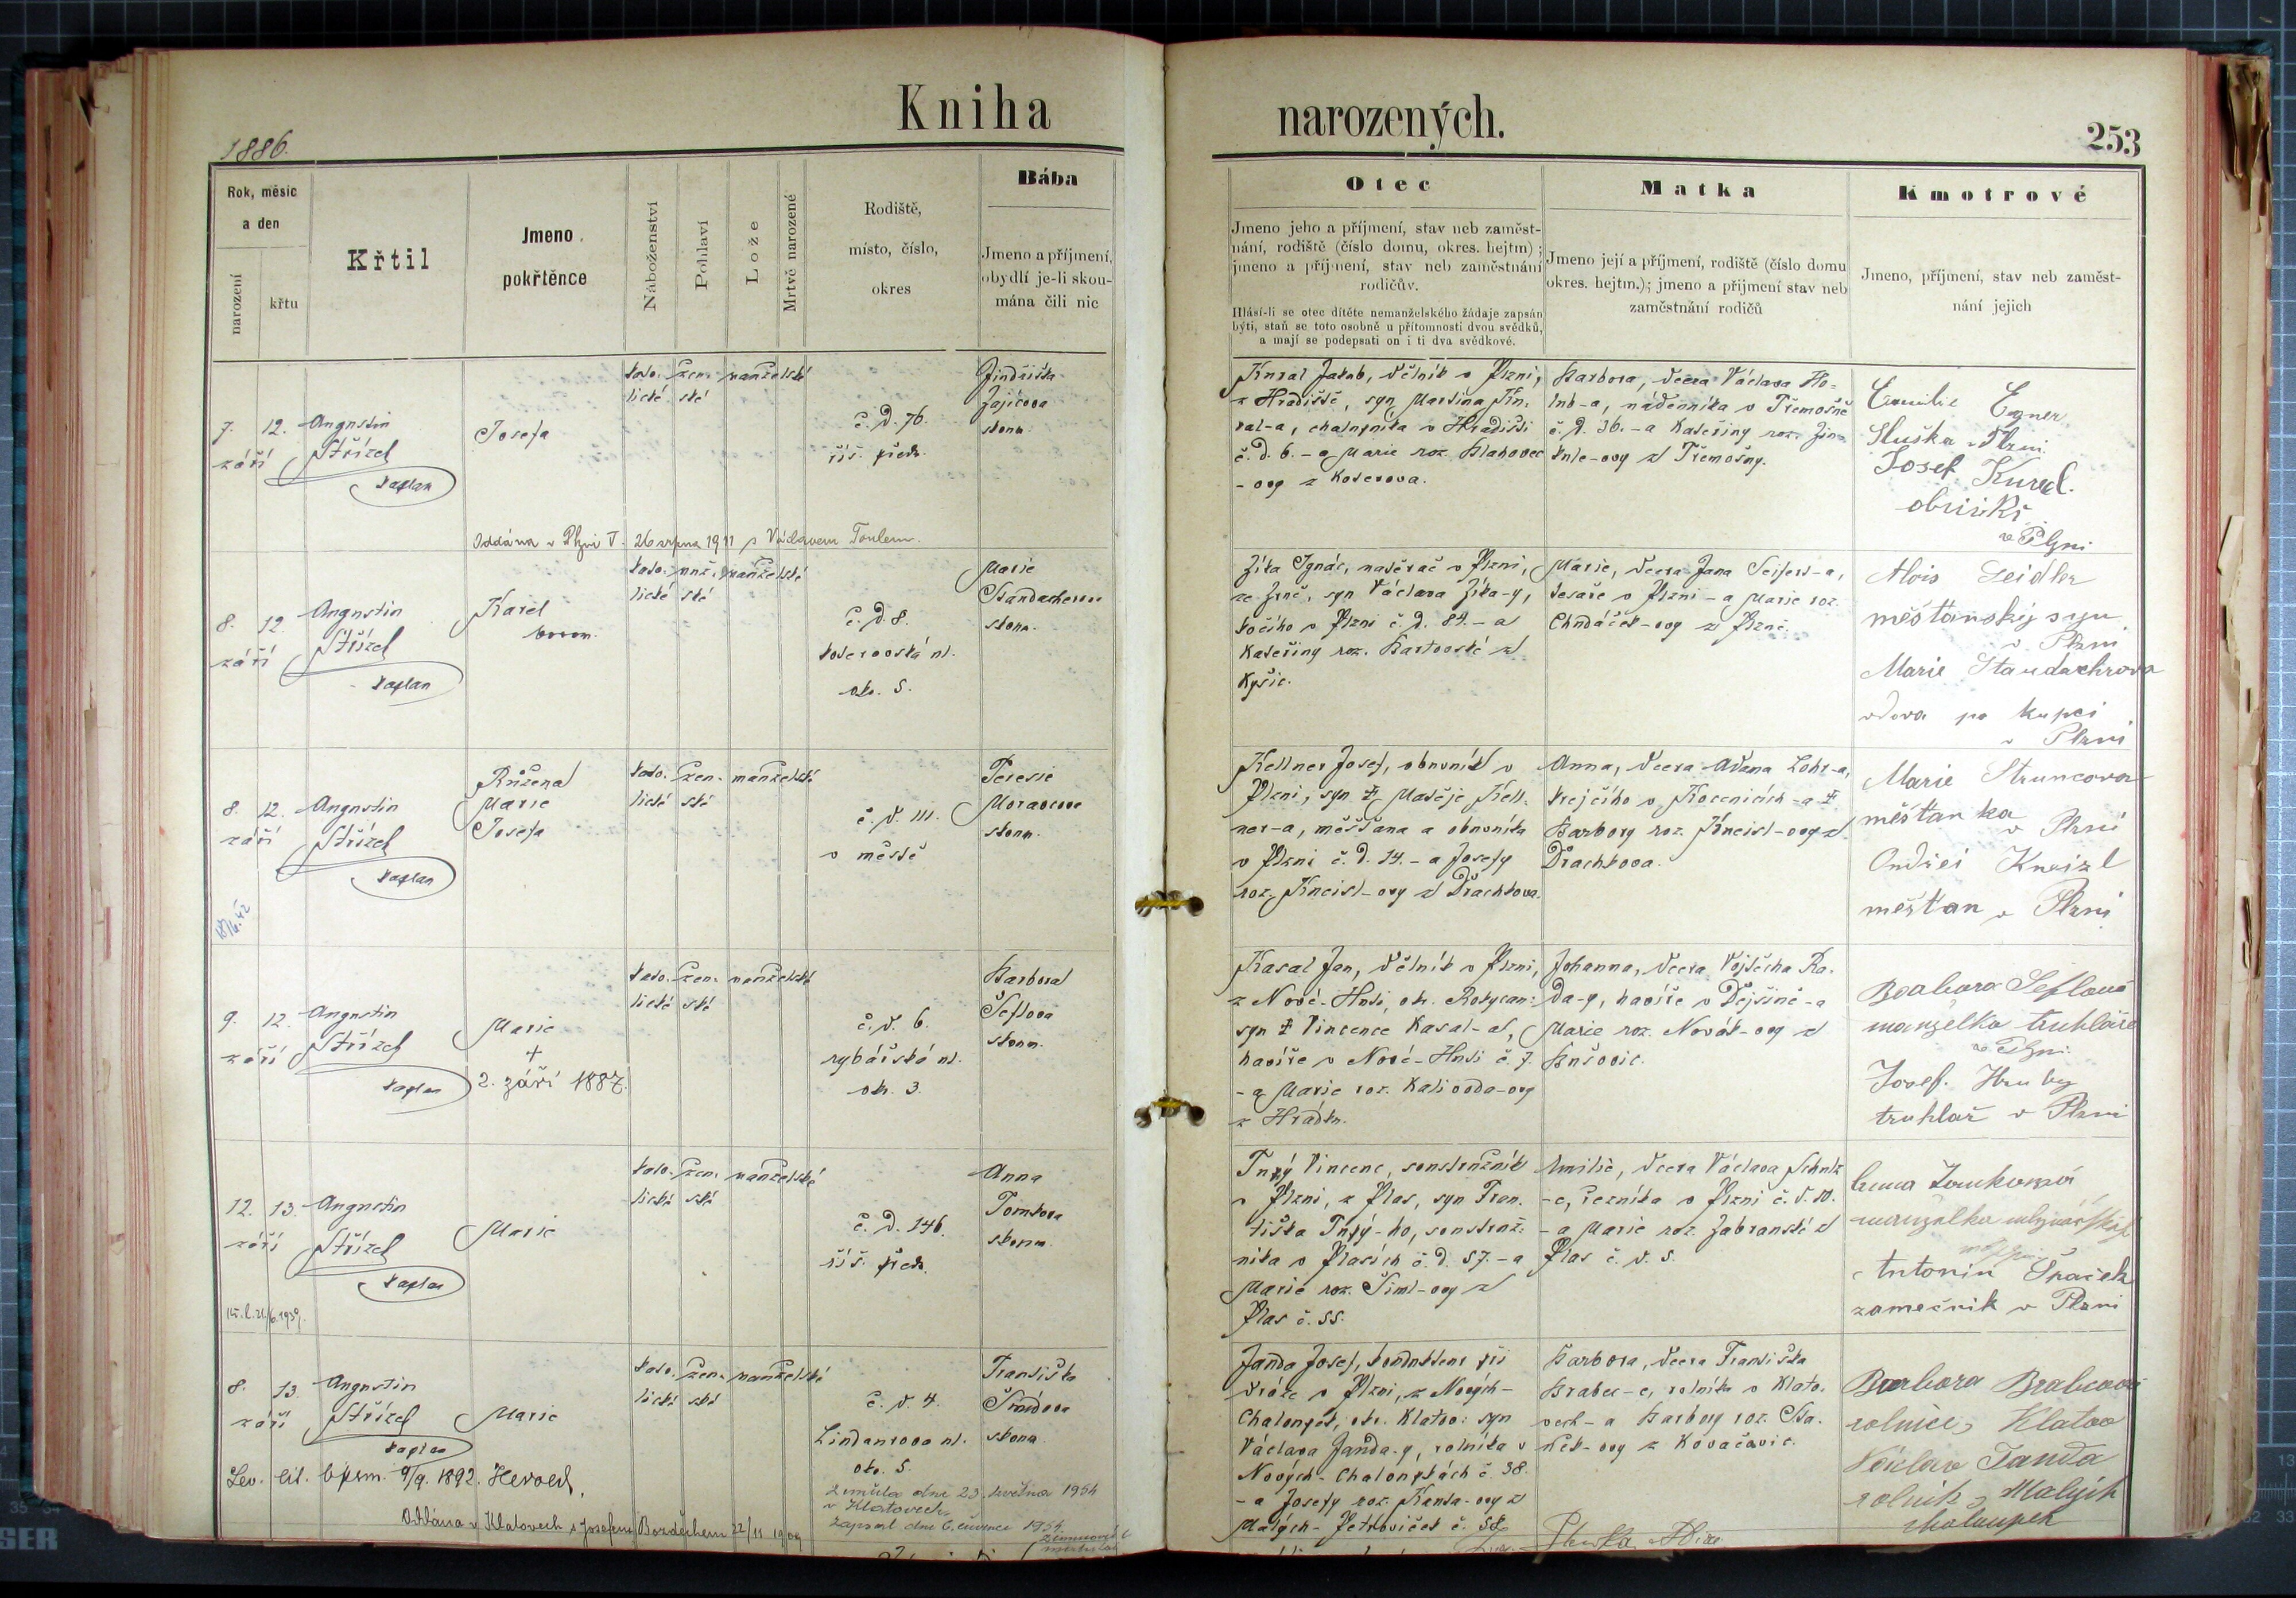 Kniha
narozených.
1886.
253
Rok, měsíc
a den
narození
křtu
Křtil
Jmeno
pokřtěnce
Náboženství
Pohlaví
Lože
Mrtvě narozené
Rodiště,
místo, číslo,
okres
Bába
Jmeno a příjmení,
obydlí je-li skou-
mána čili nic
Otec
Jmeno jeho a příjmení, stav neb zaměst-
nání, rodiště (číslo domu, okres. hejtm) ;
jmeno a příjmení, stav neb zaměstnání
rodičův.
Hlásí-li se otec dítěte nemanželského žádaje zapsán
býti, staň se toto osobně u přítomnosti dvou svědků,
a mají se podepsati on i ti dva svědkové.
Matka
Jmeno její a příjmení, rodiště (číslo domu
okres. hejtm.); jmeno a příjmení stav neb
zaměstnání rodičů
Kmotrové
Jmeno, příjmení, stav neb zaměst-
nání jejich
7. 12.
září
Augustin
Střízek
kaplan
Josefa
kato- žen- manželské
lické ské
č. d. 76.
říš. před.
Jindřiška
Zajícova
zkoum.
Kural Jakub, dělník v Plzni,
z Hradiště, syn Martina Ku-
ral-a, chalupníka v Hradišti
č. d. 6. - a Marie roz. Blahovec
-ovy z Koterova.
Barbora, dcera Václava Ho-
lub-a, nádenníka v Třemošné
č. d. 36. - a Kateřiny roz.
z Třemošny.
Emilie Egner
Služka v Plzni
Josef Kural.
v Plzni
Oddána v Plzni V. 26 srpna 1911 s Václavem
8. 12.
září
Augustin
Střízek
kaplan
Karel
borom.
kato- muž- manželské
lické ské
č. d. 8.
koterovská ul.
okr. 5.
Marie
Standacherova
zkoum.
Zíka Ignác, v Plzni,
syn Václava Zíka-y,
kočího v Plzni č. d. 84. - a
Kateřiny roz. Bartovské z
Kyšic.
Marie, dcera Jana Seifert-a,
tesaře v Plzni - a Marie roz.
Chudáček-ovy z Plzně.
Alois Seidler
měštanský syn
v Plzni
Marie Standachrova
vdova po kupci
v Plzni
8. 12.
září
Augustin
Střízek
kaplan
Růžena
Marie
Josefa
kato- žen- manželské
lické ské
č. d. 111.
v městě
Teresie
Moravcova
zkoum.
18/6. 42
Kellner Josef, obuvník v
Plzni, syn † Matěje Kell-
ner-a, měšťana a obuvníka
v Plzni č. d. 14. - a Josefy
roz. Kneisl-ovy z Drachkova.
Anna, dcera Adama Lohr-a,
krejčího v - a †
Barbory roz. Kneisl-ovy z
Drachkova.
Marie Struncova
měštanka
v Plzni
Ondřej Kneizl
měštan v Plzni
9. 12.
září
Augustin
Střízek
kaplan
Marie
+
2. září 1887.
kato- žen- manželské
lické ské
č. d. 6.
rybářská ul.
okr. 3.
Barbora
Šeflova
zkoum.
Kasal Jan, dělník v Plzni,
z Nové-Huti, okr. Rokycan:
syn † Vincence Kasal-a,
havíře v Nové-Huti č. 7.
- a Marie roz. Kalivoda-ovy
z Hrádku.
Johanna, dcera Vojtěcha Ra-
da-y, havíře v Dejšině - a
Marie roz. Novák-ovy z
Bušovic.
Barbora Seflová
manželka truhláře
v Plzni.
Josef. Hruby
truhlař v Plzni
12. 13.
září
Augustin
Střízek
kaplan
Marie
kato- žen- manželské
lické ské
č. d. 146.
říš. před.
Anna
Tomkova
zkoum.
Tupý Vincenc, soustružník
v Plzni, z Plas, syn Fran-
tiška Tupý-ho, soustruž-
níka v Plasích č. d. 57. - a
Marie roz. Šiml-ovy z
Plas č. 55.
Emilie, dcera Václava Schulz
-e, řezníka v Plzni č. d. 10.
- a Marie roz. Zabranské z
Plas č. d. 5.
Anna Tomkova
manželka
Antonin Špaček
zamečnik v Plzni
8. 13.
září
Augustin
Střízek
kaplan
Marie
kato- žen- manželské
lické ské
č. d. 4.
Lindaurova ul.
okr. 5.
Františka
Šmídova
zkoum.
Janda Josef, kondukteur při
dráze v Plzni, z Nových-
Chaloupek, okr. Klatov: syn
Václava Janda-y, rolníka v
Nových-Chaloupkách č. 38.
- a Josefy roz. ovy z
Malých-Petroviček č.
Barbora, dcera Františka
Brabec-e, rolníka v Klato-
vech - a Barbory roz.
-ovy z Kovačovic.
Barbora Brabcová
rolnice z Klatov
Václav Janda
rolnik z Malých
chaloupek
9/9. 1892.
Oddána v Klatovech s Josefem 22/11 1909
Zemřela dne 23. května 1954
v Klatovech
Zapsal dne 6. července 1954.